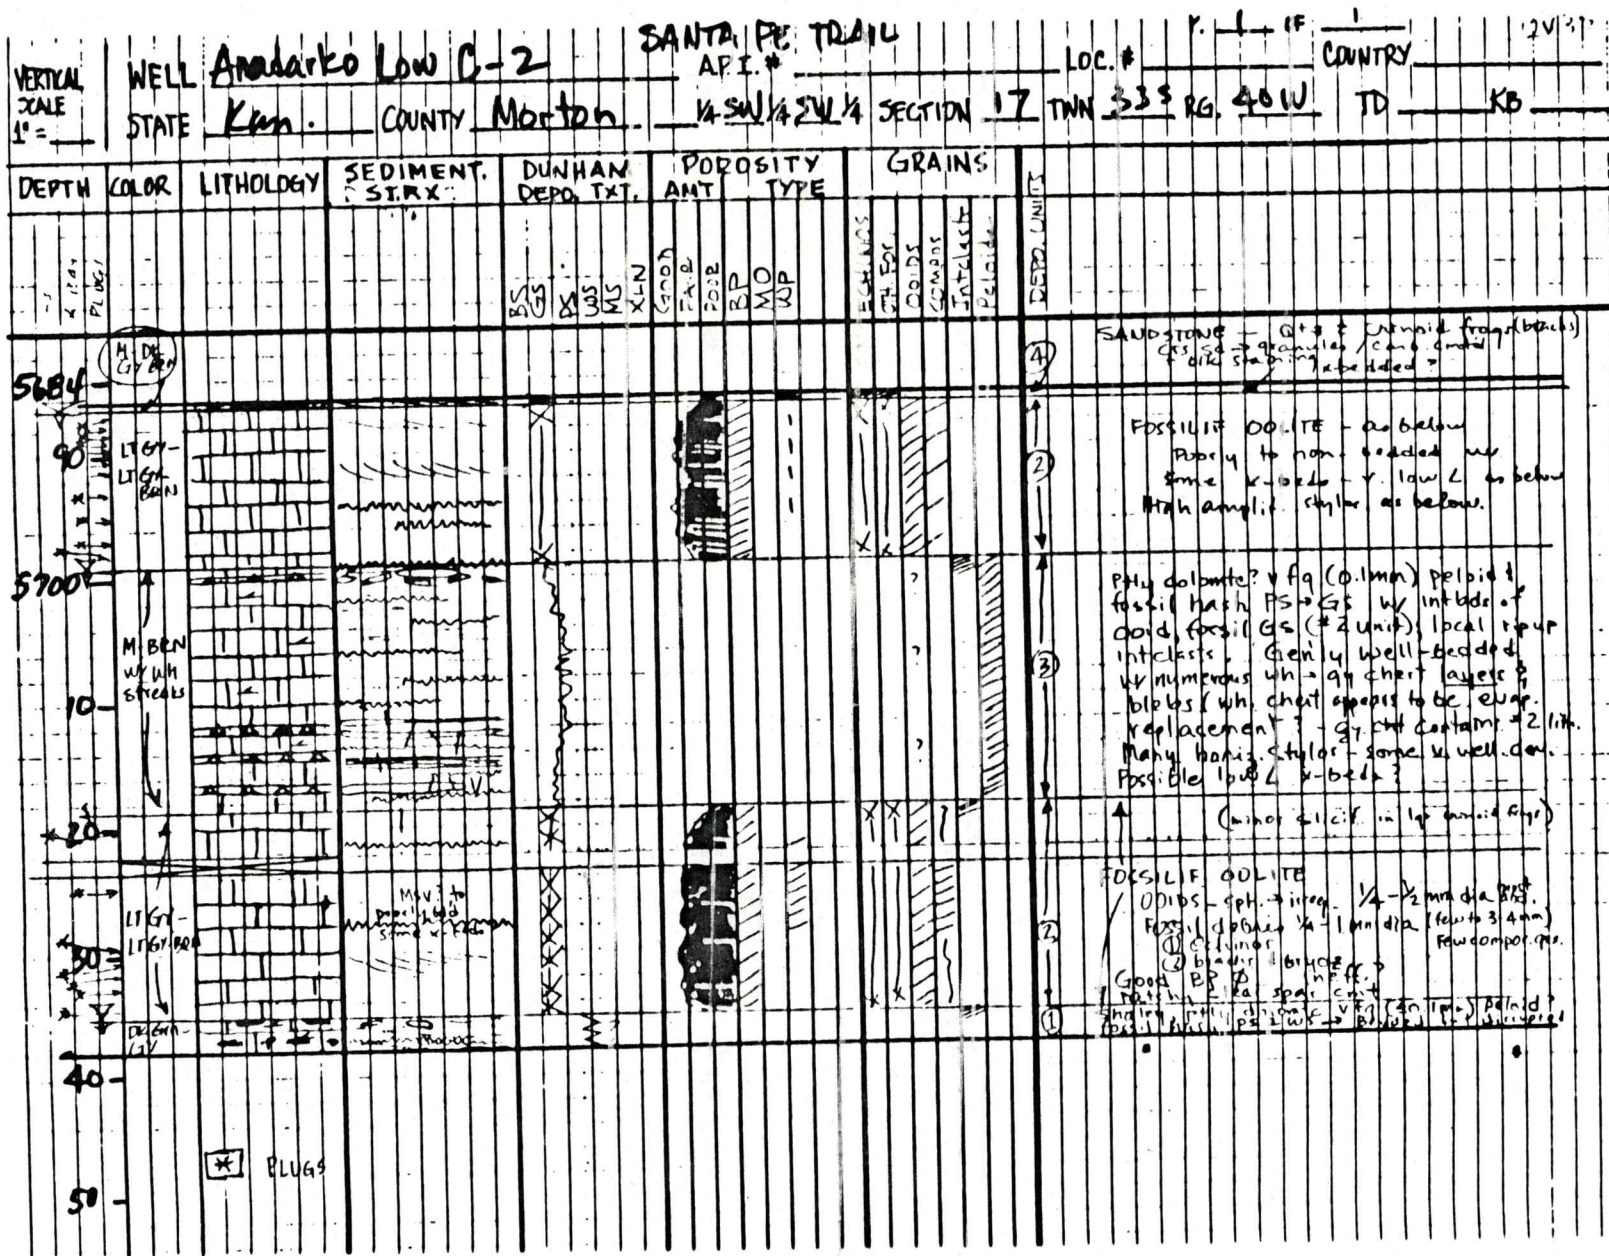 SANTA FE TRAIL
P. 1 OF 1
VERTICAL SCALE 1" =
WELL Anadarko Low C-2 A.P.I. # LOC. # COUNTRY
STATE Kan. COUNTY Morton 1/4 SW 1/4 SW 1/4 SECTION 17 TWN 33S RG. 40W TD KB
DEPTH COLOR LITHOLOGY SEDIMENT. STRX. DUNHAN DEPO. TXT. POROSITY AMT TYPE GRAINS DEPO. UNITS
PLUGS
BS GS PS WS MS XLN GOOD FAIR POOR BP MO WP ECHINOS OOIDS COMPOS Intclasts Peloids
M-DK GY BRN
5684
90
5700
10
20
30
40
50
LT GY-
LT GY-
BRN
M-BRN
w/ wh
streaks
LT GY-
LT GY-BRN
DK GRN-
GY
MSV? to
some x-beds
4
SANDSTONE - Qtz & crinoid frags (blacks)
crs sd → granules
x-bedded?
2
FOSSILIF OOLITE - as below
Poorly to non-bedded w/
some x-beds - v. low ∠ as below
High amplit. stylos as below.
3
Ptly dolomite? v fg (0.1mm) peloid &
fossil hash PS → GS w/ intbds of
ooid, fossil GS (#2 unit), local ripup
intclasts. Genly well-bedded
w/ numerous wh → gy chert layers &
blebs (wh. chert appears to be evap.
replacement? - gy cht contains #2 lith.
Many horiz. stylos - some v. well dev.
Possible low ∠ x-beds?
(minor silicif. in lge crinoid frags)
2
FOSSILIF. OOLITE
OOIDS - sph. → irreg. 1/4 - 1/2 mm dia
Fossil debris 1/4 - 1 mm dia (few to 3-4 mm)
Few compos. gns.
Good BP Ø
Patchy spar cmt
1
* PLUGS